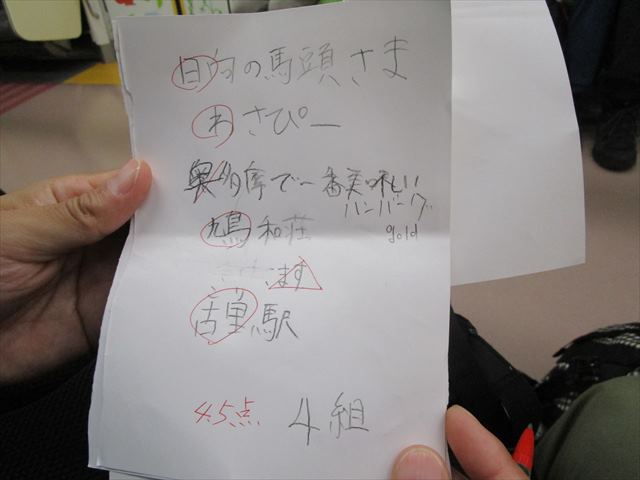 日向の馬頭さま
わさぴー
奥多摩で一番美味しい
ハンバーグ
鳩和荘
gold
ます
古里駅
4.5点
4組